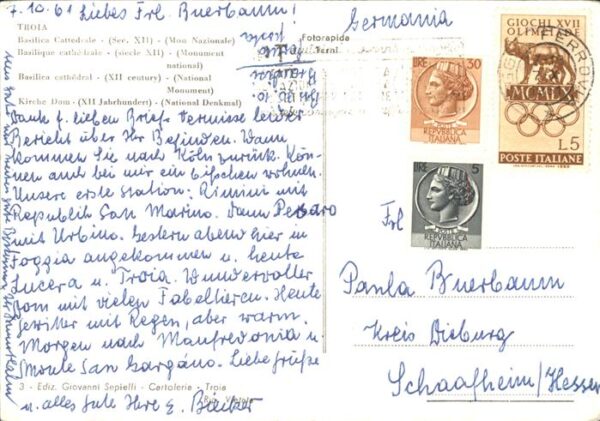 7.10.61 Liebes Frl. Buerbaum!
Germania
TROIA
Basilica Cattedrale - (Sec. XII) - (Mon Nazionale)
Basilique cathédrale - (siècle XII) - (Monument
national)
Basilica cathédral - (XII century) - (National
Monument)
Kirche Dom - (XII Jahrhundert) - (National Denkmal)
Fotorapida
Terni
Dank f. lieben Brief. Vermisse leider
Bericht über Ihr Befinden. Wann
kommen Sie nach Köln zurück. Kön-
nen auch bei mir ein bißchen wohnen.
Unsere erste Station: Rimini mit
Republik San Marino. Dann Pesaro
mit Urbino. Gestern abend hier in
Foggia angekommen u. heute
Lucera u. Troia. Wundervoller
Dom mit vielen Fabeltieren. Heute
Gewitter mit Regen, aber warm.
Morgen nach Manfredonia u.
Monte San Gargáno. Liebe Grüße
u. alles Gute Ihre E. Bäcker
3 - Ediz. Giovanni Sepielli - Cartoleria - Troia
Rip. Vietata
GIOCHI XVII
OLIMPIADE
MCMLX
L5
POSTE ITALIANE
LIRE 30
REPVBBLICA
ITALIANA
LIRE 5
REPVBBLICA
ITALIANA
FERROVIA
Frl
Paula Buerbaum
Kreis Dieburg
Schaafheim/Hessen